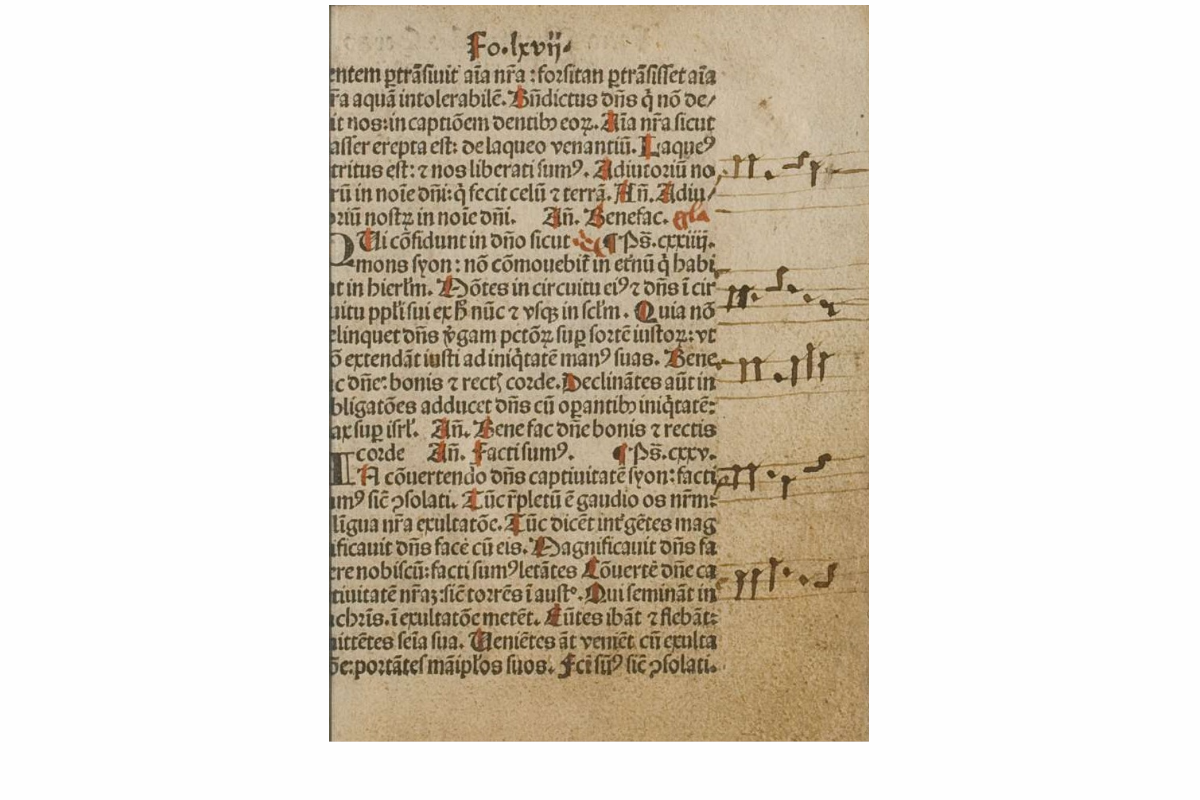 Fo.lxvij.
entem ꝑtrāsiuit aīa nr̄a : forsitan ꝑtrāsisset aīa
r̄a aquā intolerabilē. Bn̄dictus dn̄s q̇ nō de/
it nos: in captiōem dentibꝫ eoꝝ. Aīa nr̄a sicut
asser erepta est: de laqueo venantiū. Laqueꝰ
tritus est: ⁊ nos liberati sumꝰ. Adiutoriū no
rū in noīe dn̄i: q̇ fecit celū ⁊ terrā. An̄. Adiu/
oriū nostꝝ in noīe dn̄i. An̄. Benefac. gla
QUi cōfidunt in dn̄o sicut ¶ Ps̄. cxxiiij.
mons syon : nō cōmouebit̄ in et̄nū q̇ habi
at in hierl̄m. Mōtes in circuitu eiꝰ ⁊ dn̄s ī cir
uitu ppl̄i sui ex h̄ nūc ⁊ vsqꝫ in scl̄m. Quia nō
elinquet dn̄s v̄gam pctōꝝ suꝑ sortē iustoꝝ: vt
ō extendāt iusti ad iniq̇tatē manꝰ suas. Bene
ac dn̄e: bonis ⁊ rectꝭ corde. Declinātes aūt in
bligatōes adducet dn̄s cū oꝑantibꝫ iniq̇tatē:
ax suꝑ isrl̄. An̄. Bene fac dn̄e bonis ⁊ rectis
corde An̄. Facti sumꝰ. ¶ Ps̄. cxxv.
IN cōuertendo dn̄s captiuitatē syon: facti
umꝰ sic̄ ꝯsolati. Tūc r̄pletū ē gaudio os nr̄m:
līgua nr̄a exultatōe. Tūc dicēt int̄ gētes mag
ificauit dn̄s facē cū eis. Magnificauit dn̄s fa
ere nobiscū: facti sumꝰ letātes Cōuertē dn̄e ca
tiuitatē nr̄aꝫ: sic̄ torrēs ī austº. Qui semināt in
achr̄is. ī exultatōe metēt. Eūtes ibāt ⁊ flebāt:
ittētes seīa sua. Ueniētes āt veniēt cū exulta
ōe: portātes māipl̄os suos. Fc̄i sūꝰ sic̄ ꝯsolati.